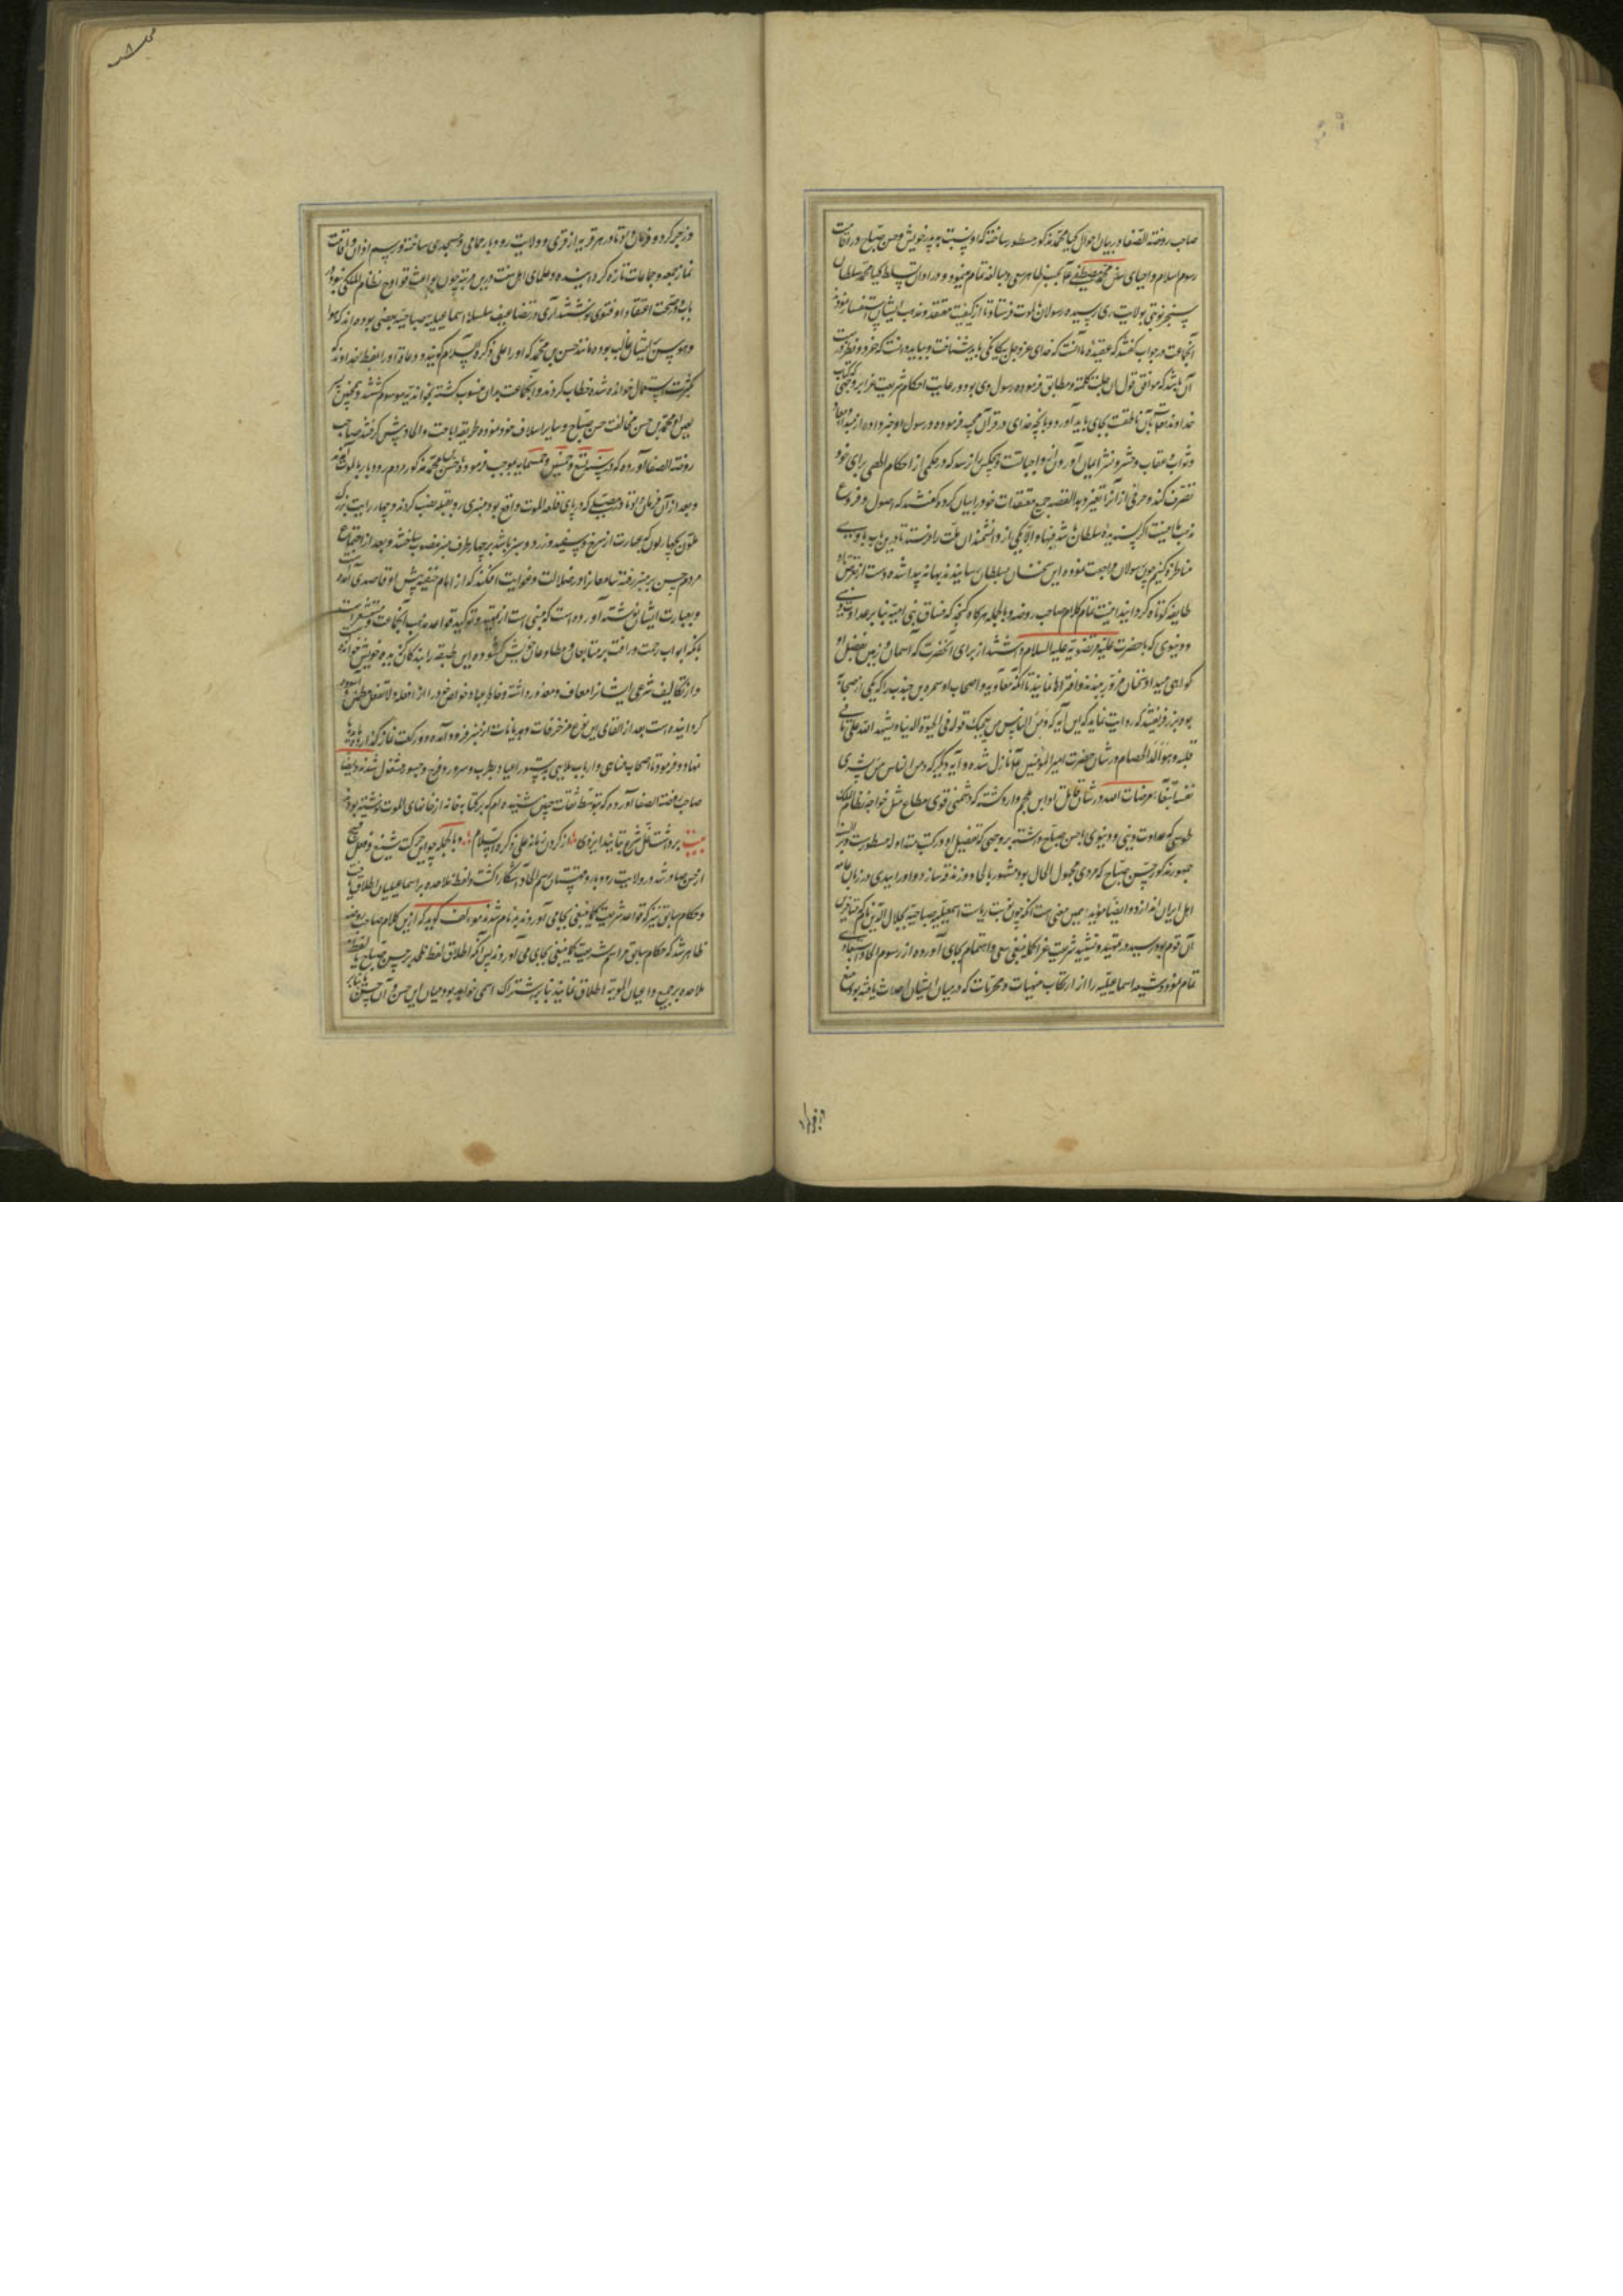 صاحب روضة الصفا در بیان احوال کیا محمد مذکور مسطور ساخته که او بنسبت پدر خویش و حسن صباح در اقامت
رسوم اسلام و احیای سنن محمد مصطفی بحسب ظاهر سعی و مبالغه تمام مینمود و در اوان تسلط کیا محمد سلطان
سنجر نوبتی بولایت ری رسیده رسولان بالموت فرستاد تا از کیفیت معتقد و مذهب ایشان استفسار نمودند
آنجماعت در جواب گفتند که عقیده ما آنست که خدای عز و جل بیگانگی باید شناخت و بباید دانست که خرد و نظر درست
آن باشد که موافق قول آن جلت کلمته و مطابق فرموده رسول وی بود و رعایت احکام شریعت غرا بر وجهی که در کتاب
خداوند بآن ناطقست بجای باید آورد و بانچه خدای در قرآن مجید فرموده و رسول او خبر داده از مبدا و معاد
و ثواب و عقاب و حشر و نشر ایمان آوردن واجبات است و هیچکس را نرسد که در حکمی از احکام الهی برای خود
تصرف کند و حرفی از آنرا تغیر دهد القصه جمیع معتقدات خود را بیان کرده گفتند که اصول و فروع
مذهب ما اینست اگر پسندیده سلطان باشد فبها و الا یکی از دانشمندان ملت را فرستد تا درین باب با وی
مناظره کنیم چون رسولان مراجعت نموده این سخنان بسلطان رسانیدند بهانه پیدا شده دست از تعرض آن
طایفه کوتاه گردانید اینست تمام کلام صاحب روضه و بالجمله هرگاه که فساق بنی امیه بنابر عداوت دینی
و دنیوی که با حضرت علیه مرتضویه علیه السلام داشتند از برای آنحضرت که آسمان و زمین بفضل او
گواهی میداد سخنان مزور ببندند و افتراها نمایند تا آنکه معاویه و اصحاب او سمره بن جندب را که یکی از صحابه
بود بزر فریفتند که روایت نماید که این آیه که و من الناس من یعجبک قوله فی الحیوة الدنیا و یشهد الله علی ما فی
قلبه و هو الد الخصام در شان حضرت امیر المؤمنین نازل شده و آیه دیگر که و من الناس من یشری
نفسه ابتغاء مرضات الله در شان قاتل او ابن ملجم وارد گشته که دشمنی قوی مطاع مثل خواجه نظام الملک
طوسی که عداوت دینی و دنیوی با حسن صباح داشته بر وجهی که تفصیل او در کتب متداوله مسطور است و السنه
جمهور مذکور حسن صباح که مردی مجهول الحال بود مشهور بالحاد و زندقه سازد و او را بدی در زبان عامه
اهل ایران اندازد و ایضا مؤید همین معنی است آنکه چون نوبت ریاست اسمعیلیه صباحیه بجلال الدین
آن قوم بود رسید در تمهید و تشیید شریعت غرا کما ینبغی سعی و اهتمام بجای آورده از رسوم الحاد استبعادی
تمام نمود و شیعه اسماعیلیه را از ارتکاب منهیات و محرمات که در میان ایشان احداث یافته بود منع
و زجر کرد و فرمان داد تا در هر قریه از قری و ولایت رودبار حمامی و مسجدی ساختند و رسم اذان و اقامت
نماز جمعه و جماعات تازه گردانیده و علمای اهل سنت درین مرتبه چون بواعث قوادح نظام الملکی نبود در
باب صحت اعتقاد او فتوی نوشتند آری در تضاعیف سلسله اسماعیلیه صباحیه بعضی بوده اند که هوا
و هوس بر ایشان غالب بوده مانند حسن بن محمد که او را علی ذکره السلام گویند و عامه او را بلفظ خداوند که
بکثرت استعمال خوانده شده خطاب کردند و آنجماعت بدان منسوب گشته بخواندیه موسوم گشتند و همچنین پسر
بعین او محمد بن حسن مخالفت حسن صباح و سایر اسلاف خود نموده طریقه اباحت و الحاد پیش گرفتند صاحب
روضة الصفا آورده که در سنه تسع و خمسین و خمسمایه بموجب فرموده حسن بن محمد مذکور مردم رودبار بالموت آمدند
و بعد از آن فرمان داد تا در مصلی که در پای قلعه الموت واقع بود منبری رو بقبله نصب کردند و چهار رایت بزرگ
ملون بچهار لون که عبارت از سرخ و سفید و زرد و سبز باشد بر چهار طرف منبر منصوب ساختند و بعد از اجتماع
مردم حسن بر منبر رفته سامعان را در ضلالت و غوایت افکند که از امام خفیه پیش او قاصدی آمده
و بعبارت ایشان نوشته آورده است که مبنی است از تمهید و توکید قواعد مذهب آنجماعت و مشعر است
بآنکه ابواب رحمت و رافت بر متابعان و مطاوعان خویش گشوده این طبقه را بندگان گزیده خویش خوانده
و از تکالیف شرعی ایشان را معاف و معذور داشته و خاطر عباد خواص خود را از افعل و لاتفعل مطمئن و آسوده
گردانیده است بعد از القای این نوع مزخرفات و هذیانات از منبر فرود آمده دو رکعت نماز گذارده مایده
نهاد و فرمود تا اصحاب مناهی و ارباب ملاهی بدستور اعیاد بطرب و سرور و فرح و حبور مشغول شدند و ایضا
صاحب روضة الصفا آورده که بتوسط ثقات چنین شنیده ام که بر کتابه خانه از خانهای الموت نوشته بودند
بیت برداشت غل شرع بتایید ایزدی از گردن زمانه علی ذکره السلام و بالجمله چون این حرکت شنیع و فعل قبیح
از حسن صادر شد در ولایت رودبار و قهستان رسم الحاد آشکارا گشت و لفظ ملاحده بر اسماعیلیان اطلاق یافت
و حکام سابق نیز که قواعد شریعت کما ینبغی بجا می آوردند بدنام شدند مولف گوید که ازین کلام صاحب روضه
ظاهر شد که حکام سابق مراسم شریعت کما ینبغی بجای می آوردند پس آنکه اطلاق لفظ ملحد بر حسن صباح یا لفظ
ملاحده بر جمیع داعیان الموتیه اطلاق نمایند بنابر اشتراک اسمی خواهد بود میان این حسن و آن حسن